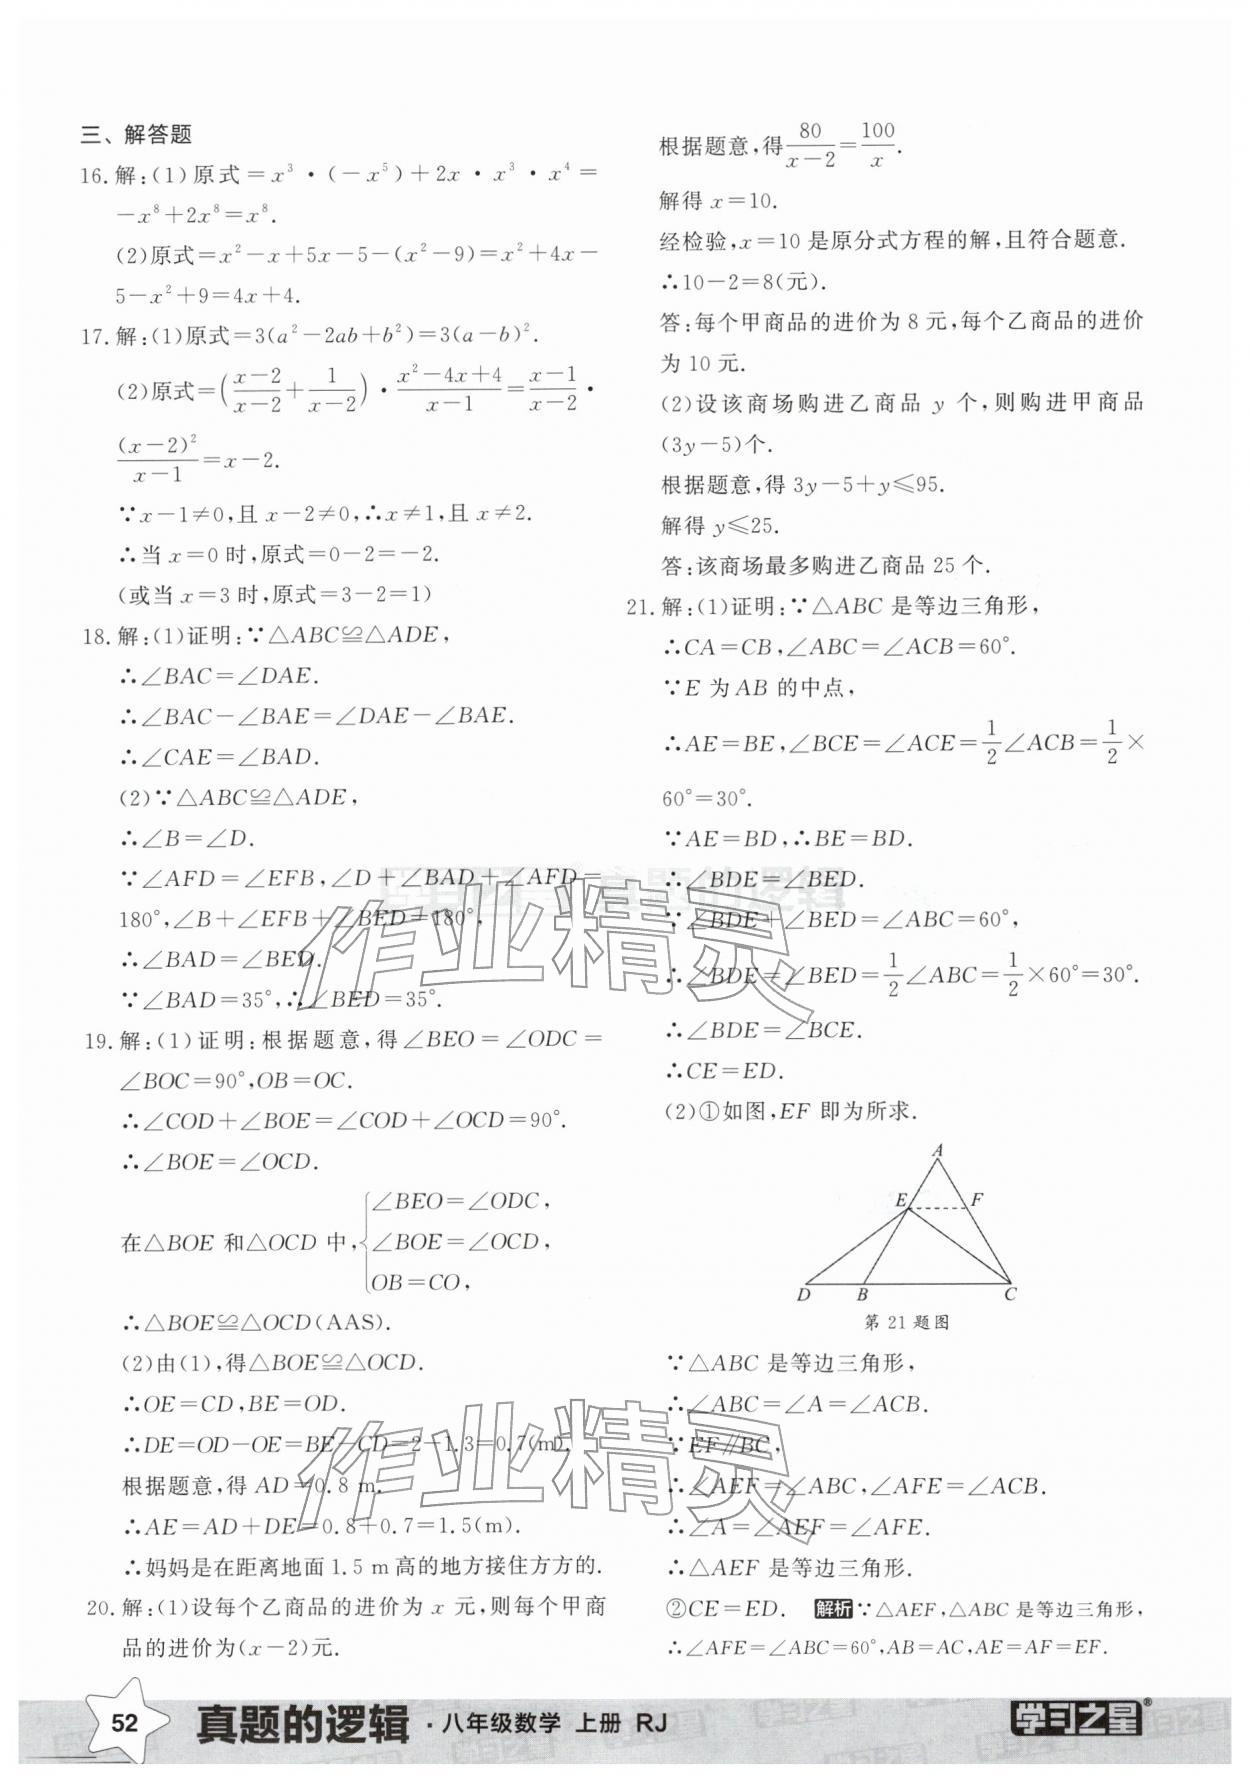 三、解答题
16.解:(1)原式=x³·(-x⁵)+2x·x³·x⁴=
-x⁸+2x⁸=x⁸.
(2)原式=x²-x+5x-5-(x²-9)=x²+4x-
5-x²+9=4x+4.
17.解:(1)原式=3(a²-2ab+b²)=3(a-b)².
(2)原式=((x-2)/(x-2)+1/(x-2))·(x²-4x+4)/(x-1)=(x-1)/(x-2)·
(x-2)²/(x-1)=x-2.
∵x-1≠0,且x-2≠0,∴x≠1,且x≠2.
∴当x=0时,原式=0-2=-2.
(或当x=3时,原式=3-2=1)
18.解:(1)证明:∵△ABC≌△ADE,
∴∠BAC=∠DAE.
∴∠BAC-∠BAE=∠DAE-∠BAE.
∴∠CAE=∠BAD.
(2)∵△ABC≌△ADE,
∴∠B=∠D.
∵∠AFD=∠EFB,∠D+∠BAD+∠AFD=
180°,∠B+∠EFB+∠BED=180°,
∴∠BAD=∠BED.
∵∠BAD=35°,∴∠BED=35°.
19.解:(1)证明:根据题意,得∠BEO=∠ODC=
∠BOC=90°,OB=OC.
∴∠COD+∠BOE=∠COD+∠OCD=90°.
∴∠BOE=∠OCD.
在△BOE和△OCD中,{∠BEO=∠ODC,
∠BOE=∠OCD,
OB=CO,
∴△BOE≌△OCD(AAS).
(2)由(1),得△BOE≌△OCD.
∴OE=CD,BE=OD.
∴DE=OD-OE=BE-CD=2-1.3=0.7(m).
根据题意,得AD=0.8 m.
∴AE=AD+DE=0.8+0.7=1.5(m).
∴妈妈是在距离地面1.5 m高的地方接住方方的.
20.解:(1)设每个乙商品的进价为x元,则每个甲商
品的进价为(x-2)元.
根据题意,得80/(x-2)=100/x.
解得x=10.
经检验,x=10是原分式方程的解,且符合题意.
∴10-2=8(元).
答:每个甲商品的进价为8元,每个乙商品的进价
为10元.
(2)设该商场购进乙商品y个,则购进甲商品
(3y-5)个.
根据题意,得3y-5+y≤95.
解得y≤25.
答:该商场最多购进乙商品25个.
21.解:(1)证明:∵△ABC是等边三角形,
∴CA=CB,∠ABC=∠ACB=60°.
∵E为AB的中点,
∴AE=BE,∠BCE=∠ACE=1/2∠ACB=1/2×
60°=30°.
∵AE=BD,∴BE=BD.
∴∠BDE=∠BED.
∵∠BDE+∠BED=∠ABC=60°,
∴∠BDE=∠BED=1/2∠ABC=1/2×60°=30°.
∴∠BDE=∠BCE.
∴CE=ED.
(2)①如图,EF即为所求.
A
E F
D B C
第21题图
∵△ABC是等边三角形,
∴∠ABC=∠A=∠ACB.
∵EF∥BC,
∴∠AEF=∠ABC,∠AFE=∠ACB.
∴∠A=∠AEF=∠AFE.
∴△AEF是等边三角形.
②CE=ED. 解析∵△AEF,△ABC是等边三角形,
∴∠AFE=∠ABC=60°,AB=AC,AE=AF=EF.
作业精灵
作业精灵
52 真题的逻辑·八年级数学 上册 RJ 学习之星®